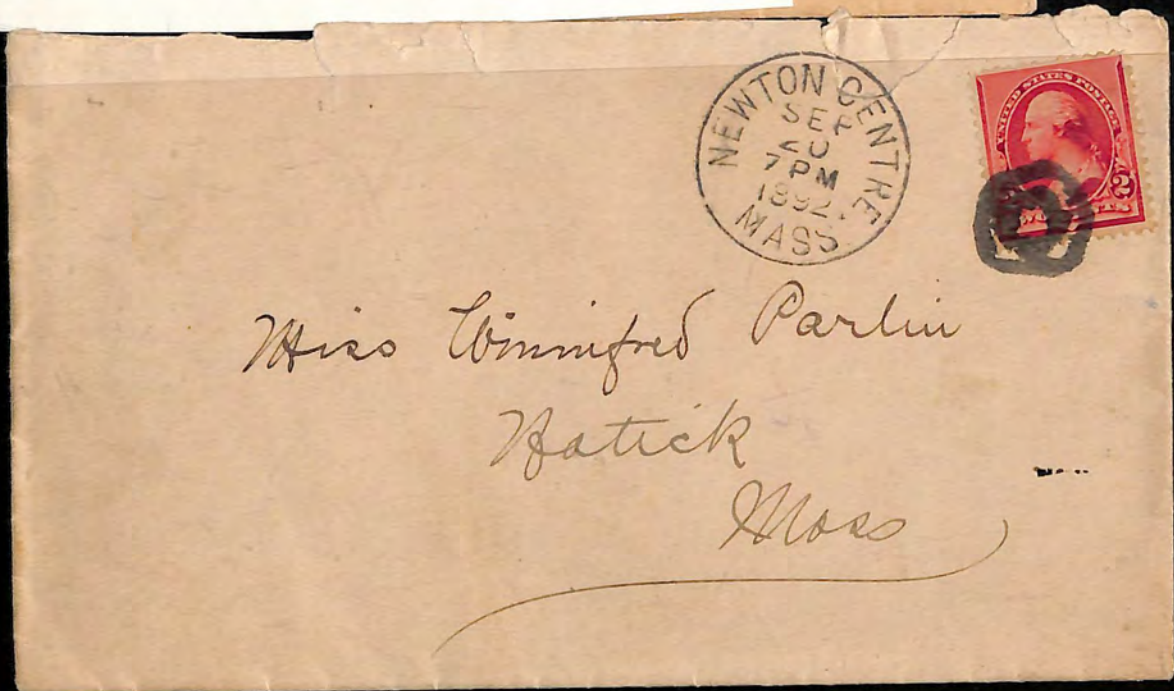 NEWTON CENTRE
SEP
20
7 PM
1892.
MASS
UNITED STATES POSTAGE
2
Miss Winnifred Parlin
Natick
Mass